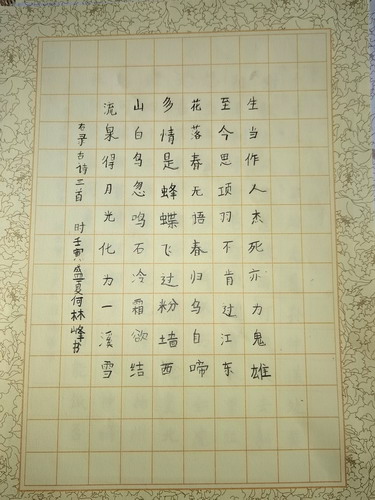 生当作人杰死亦为鬼雄
至今思项羽不肯过江东
花落春无语春归鸟自啼
多情是蜂蝶飞过粉墙西
山白鸟忽鸣石冷霜欲结
流泉得月光化为一溪雪
右录古诗三首 时壬寅盛夏何林峰书